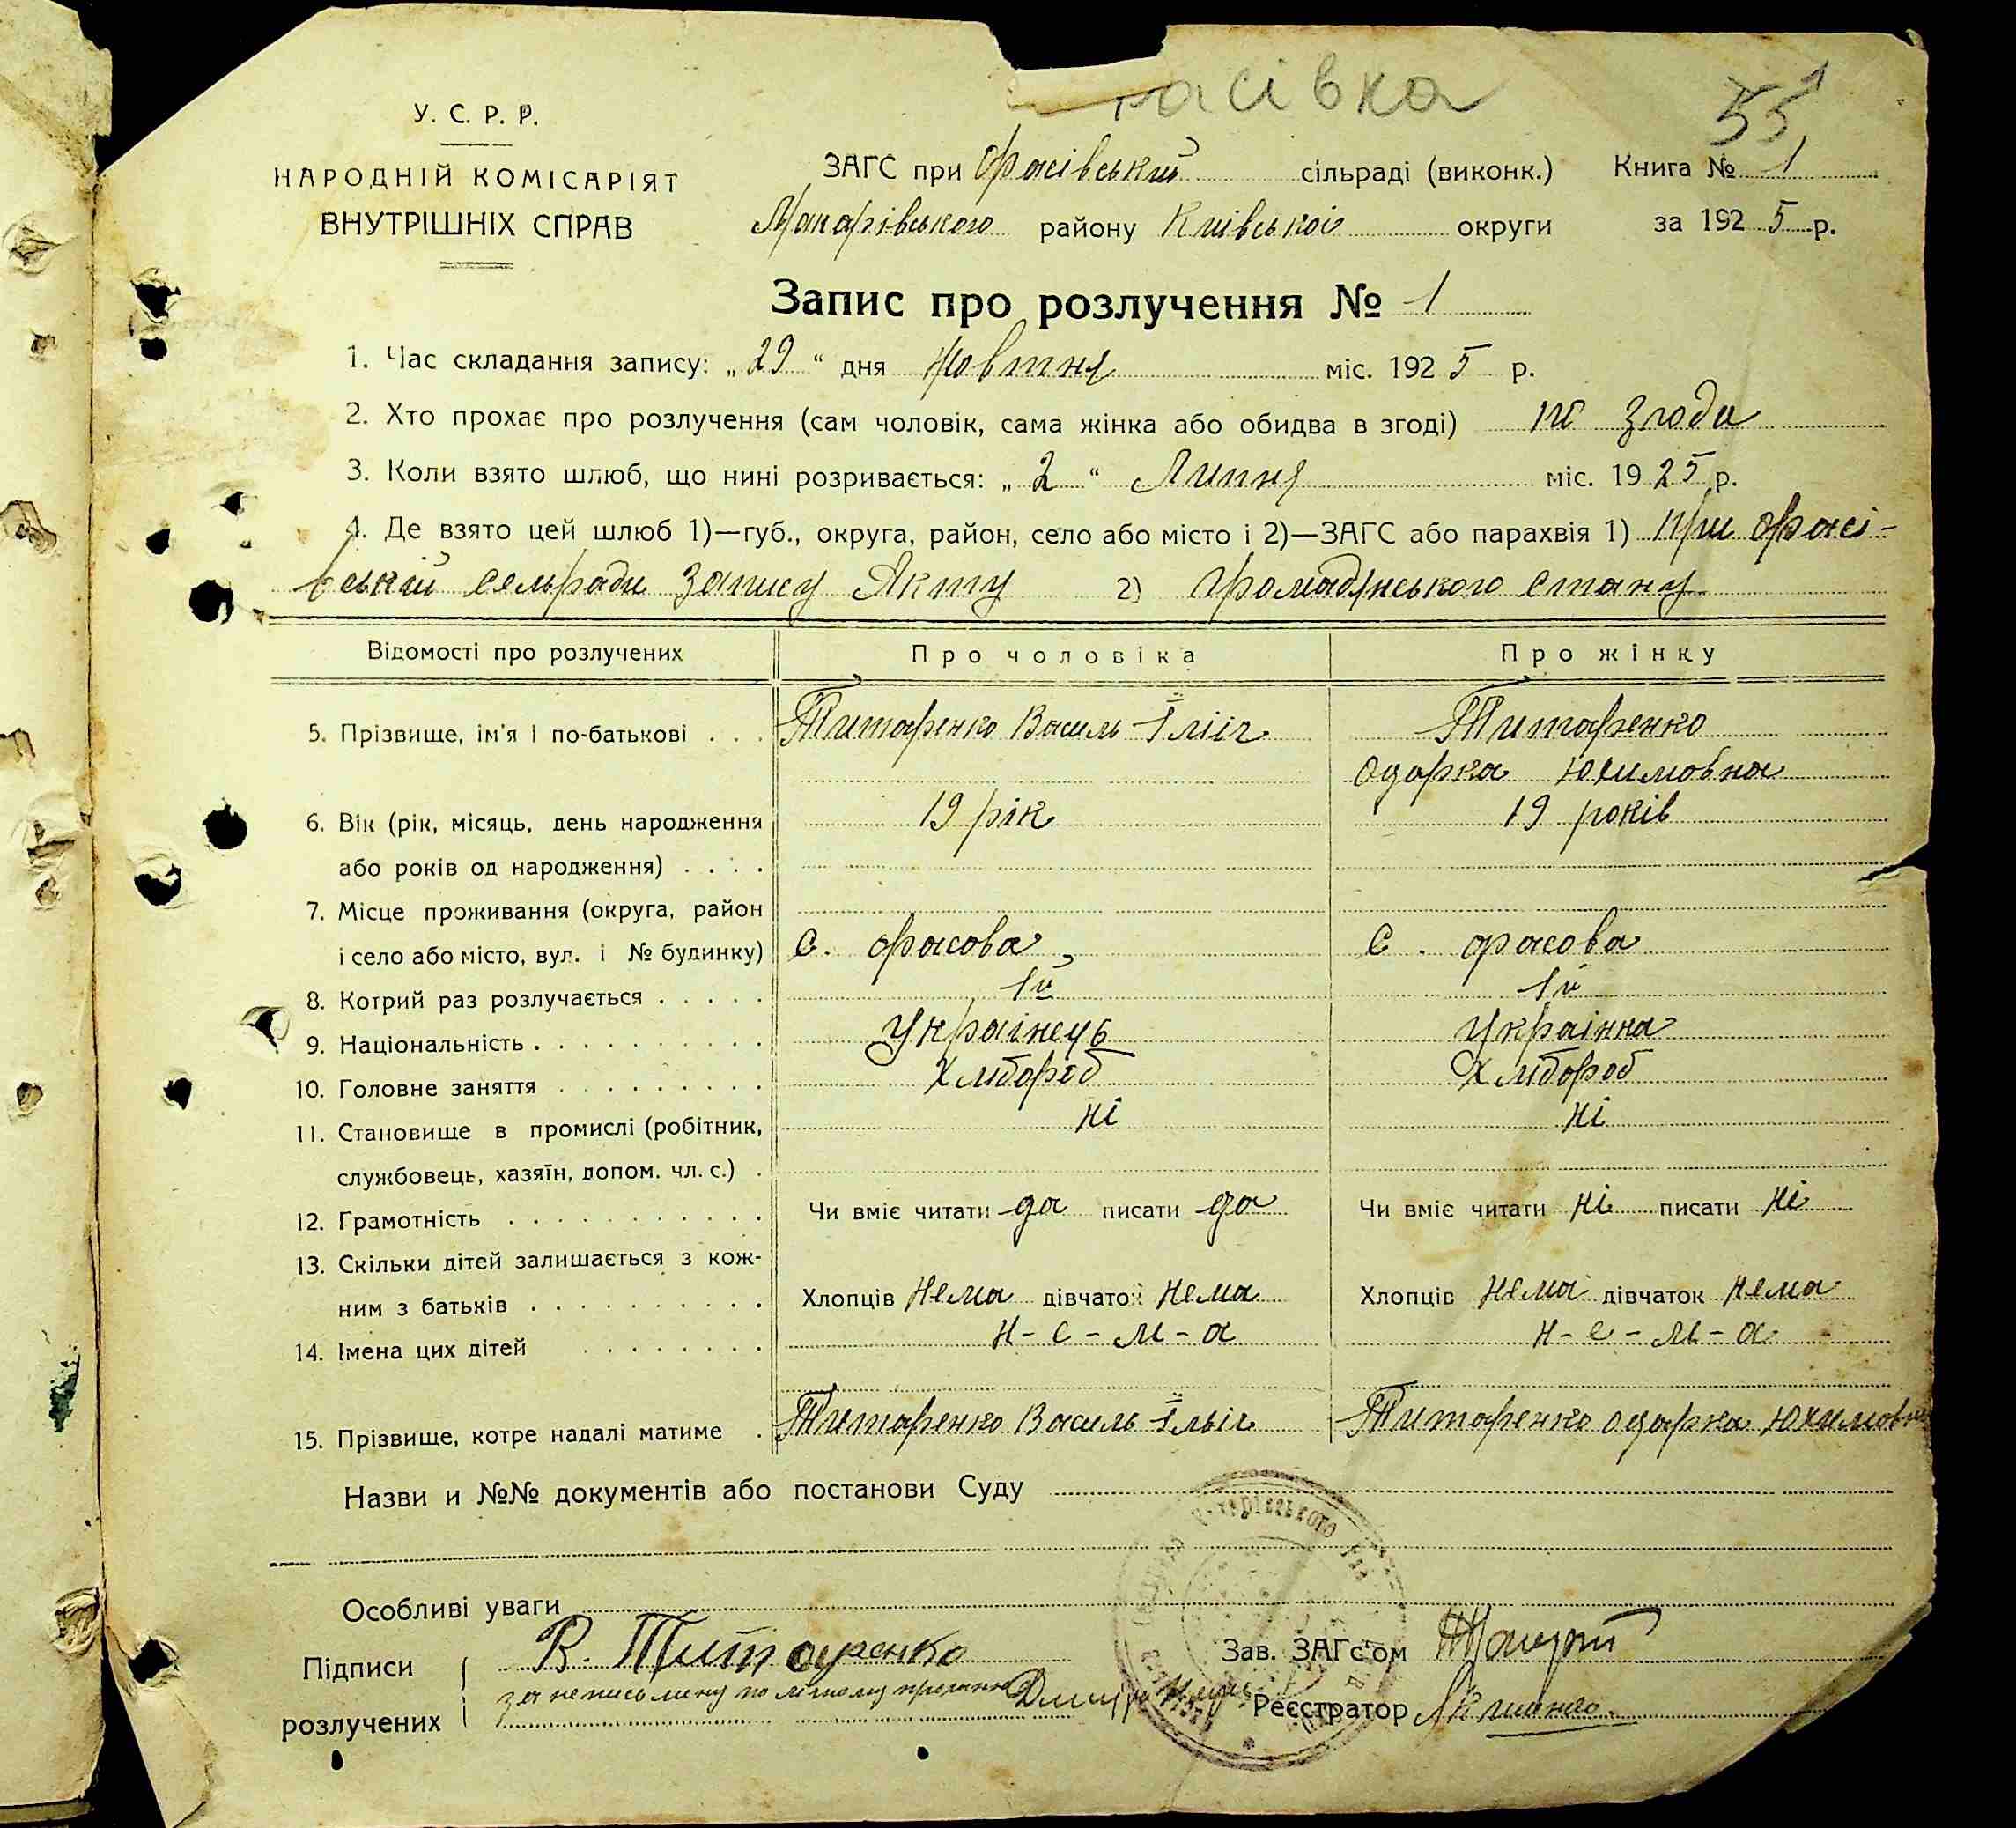 расівка
55
1
У. С. Р. Р.
НАРОДНІЙ КОМІСАРІЯТ
ВНУТРІШНІХ СПРАВ
ЗАГС при Фрасівський сільраді (виконк.) Книга № 1
Макарівського району Київської округи за 1925 р.
Запис про розлучення № 1
1. Час складання запису: „29“ дня жовтня міс. 1925 р.
2. Хто прохає про розлучення (сам чоловік, сама жінка або обидва в згоді) по згоди
3. Коли взято шлюб, що нині розривається: „2“ Липня міс. 1925 р.
4. Де взято цей шлюб 1)—губ., округа, район, село або місто і 2)—ЗАГС або парахвія 1) при Фрасі-
вській сельради запису Якту 2) громадянського стану
Відомості про розлучених Про чоловіка Про жінку
5. Прізвище, ім'я і по-батькові . . . Титаренко Василь Ілліч Титаренко
Одарка Юхимовна
6. Вік (рік, місяць, день народження 19 рік 19 років
або років од народження) . . . .
7. Місце проживання (округа, район
і село або місто, вул. і № будинку) с. Фрасова, с. Фрасова
8. Котрий раз розлучається . . . . . 1й 1й
9. Національність . . . . . . . . . . Українець Украінка
10. Головне заняття . . . . . . . . . Хлібороб Хлібороб
11. Становище в промислі (робітник, ні ні
службовець, хазяїн, допом. чл. с.) .
12. Грамотність . . . . . . . . . . . Чи вміє читати да писати да Чи вміє читати ні писати ні
13. Скільки дітей залишається з кож-
ним з батьків . . . . . . . . . . Хлопців нема дівчаток нема Хлопців нема дівчаток нема
14. Імена цих дітей . . . . . . . . Н-е-м-а Н-е-м-а
15. Прізвище, котре надалі матиме . Титаренко Василь Ільіч Титаренко Одарка Юхимовна
Назви и №№ документів або постанови Суду
Особливі уваги
Підписи В. Титаренко Зав. ЗАГс'ом
розлучених за неписьмену по лічному проханню Реєстратор